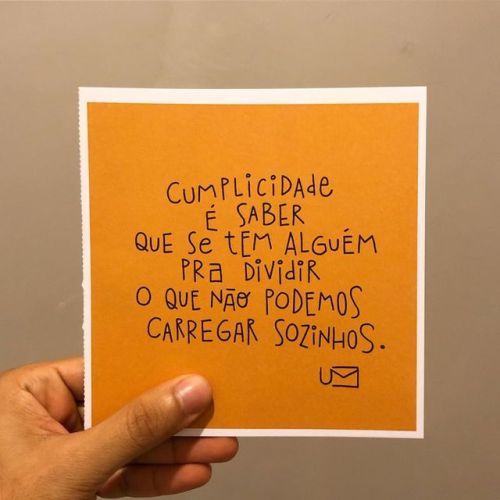 CUMPLICIDADE
É SABER
QUE SE TEM ALGUÉM
PRA DIVIDIR
O QUE NÃO PODEMOS
CARREGAR SOZINHOS.
U